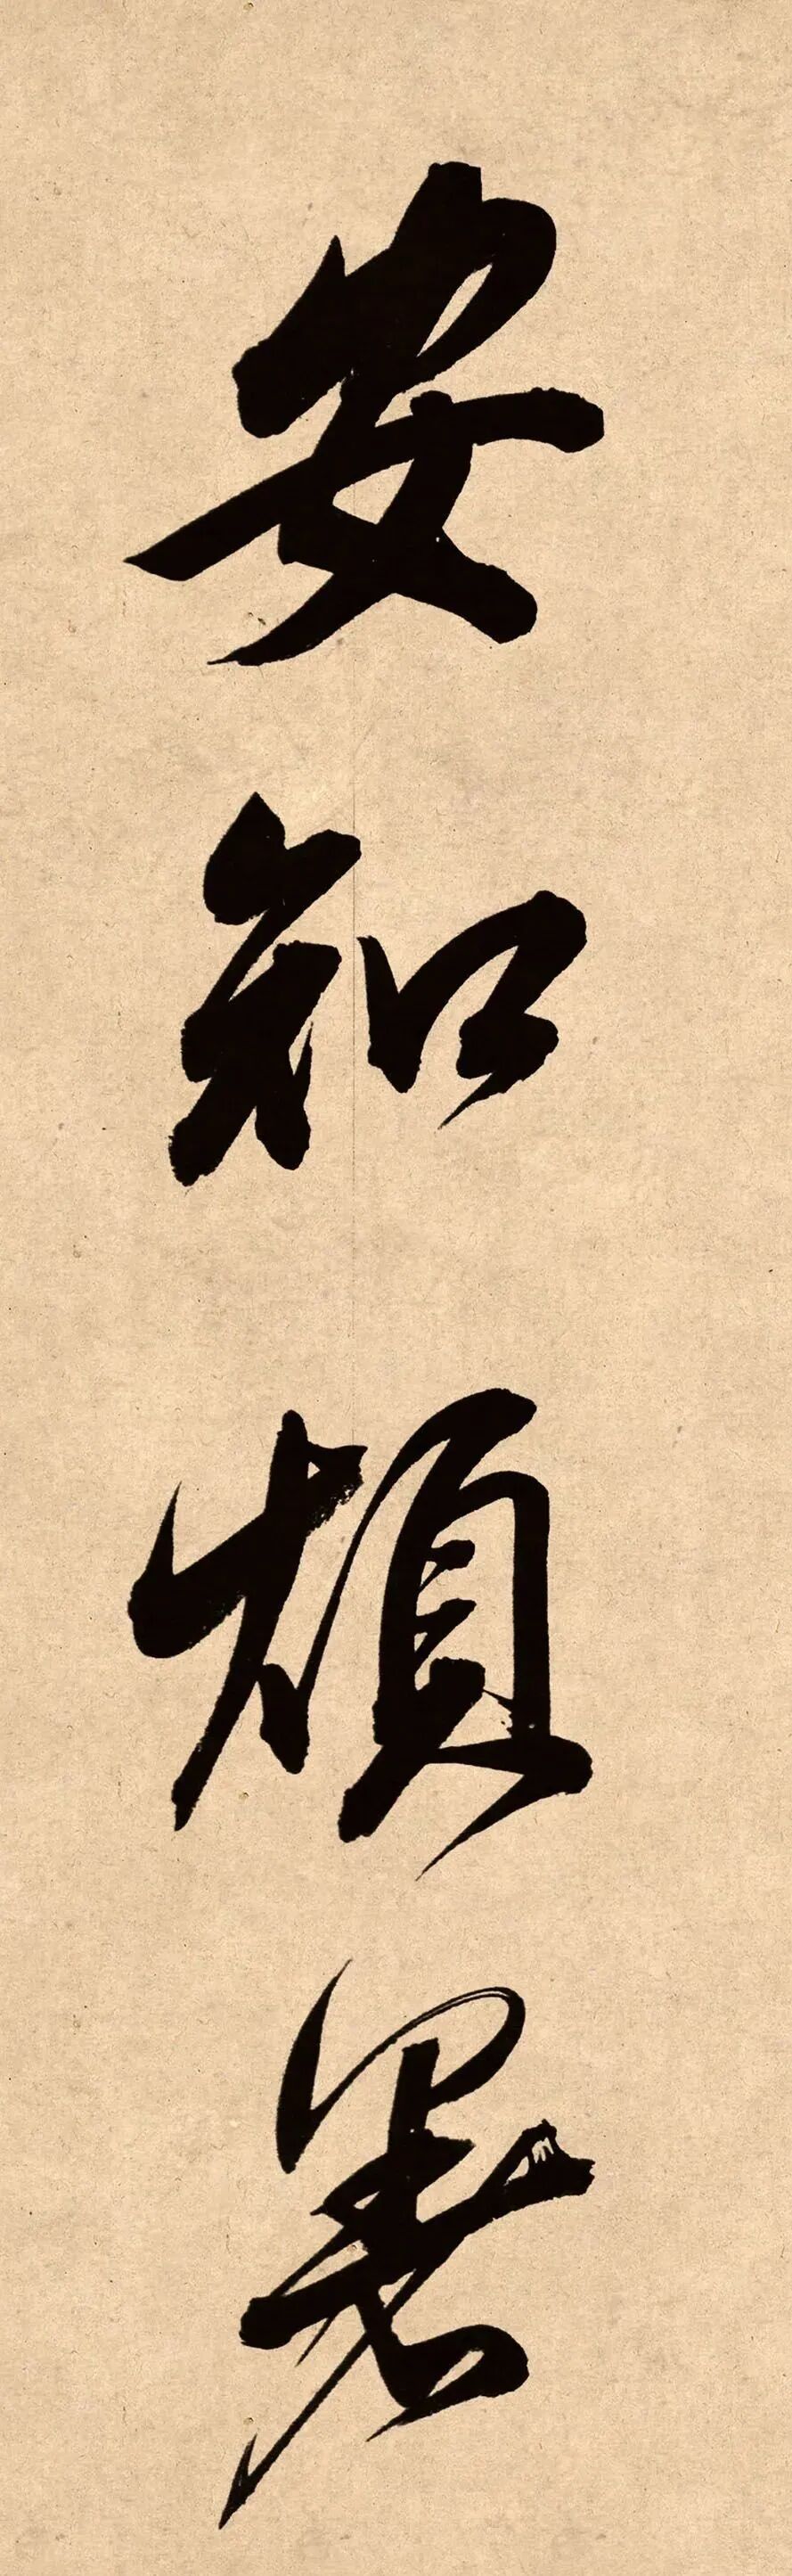 安知煩暑